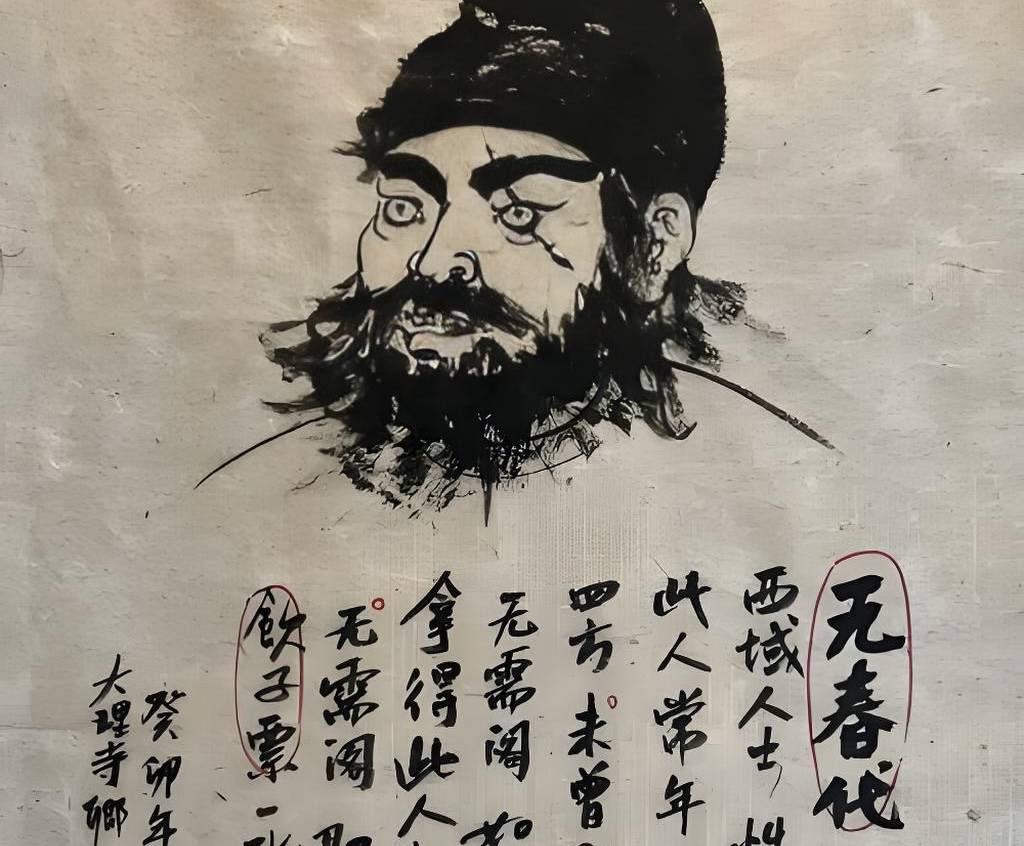 无春代
西域人士
此人常年
四方。未曾
无需阁
拿得此人
无需阁
飲子票一张
癸卯年
大理寺卿